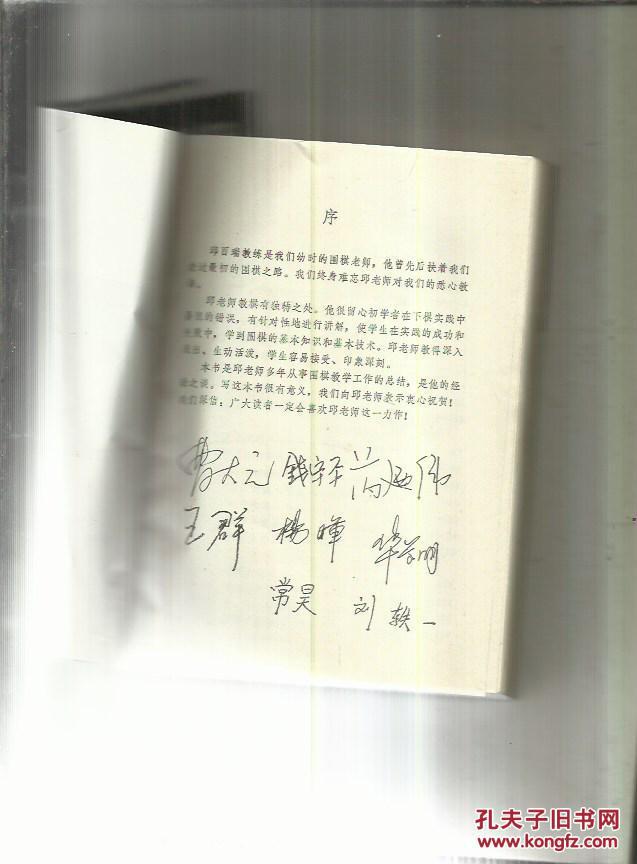 序
邱百瑞教练是我们幼时的围棋老师，他曾先后扶着我们
最初的围棋之路。我们终身难忘邱老师对我们的悉心教
邱老师教棋有独特之处。他很留心初学者在下棋实践中
的错误，有针对性地进行讲解，使学生在实践的成功和
中，学到围棋的基本知识和基本技术。邱老师教得深入
生动活泼，学生容易接受、印象深刻。
本书是邱老师多年从事围棋教学工作的总结，是他的经
之谈。写这本书很有意义，我们向邱老师表示衷心祝贺！
们深信：广大读者一定会喜欢邱老师这一力作！
曹大元 钱宇平 芮廼伟
王群 杨晖 华学明
常昊 刘轶一
孔夫子旧书网
www.kongfz.com